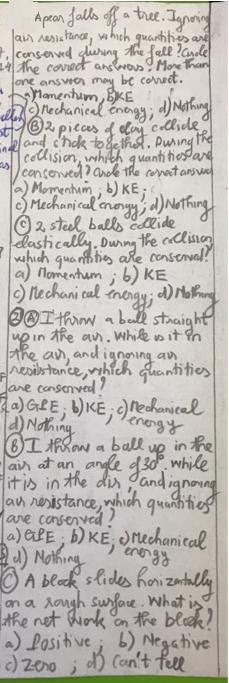 A pear falls off a tree. Ignoring
air resistance, which quantities are
conserved during the fall? Circle
the correct answers. More than
one answer may be correct.
a) Momentum, b) KE
c) Mechanical energy; d) Nothing
(B) 2 pieces of clay collide
and stick together. During the
collision, which quantities are
conserved? Circle the correct answer
a) Momentum; b) KE;
c) Mechanical energy; d) Nothing
(C) 2 steel balls collide
elastically. During the collision
which quantities are conserved?
a) Momentum; b) KE
c) Mechanical energy; d) Nothing
(2) (A) I throw a ball straight
up in the air. While is it in
the air, and ignoring air
resistance, which quantities
are conserved?
a) GPE; b) KE; c) Mechanical
d) Nothing energy
(B) I throw a ball up in the
air at an angle of 30°. while
it is in the air, and ignoring
air resistance, which quantities
are conserved?
a) GPE; b) KE; c) Mechanical
d) Nothing energy
(C) A block slides horizontally
on a rough surface. What is
the net work on the block?
a) Positive; b) Negative
c) Zero; d) Can't tell